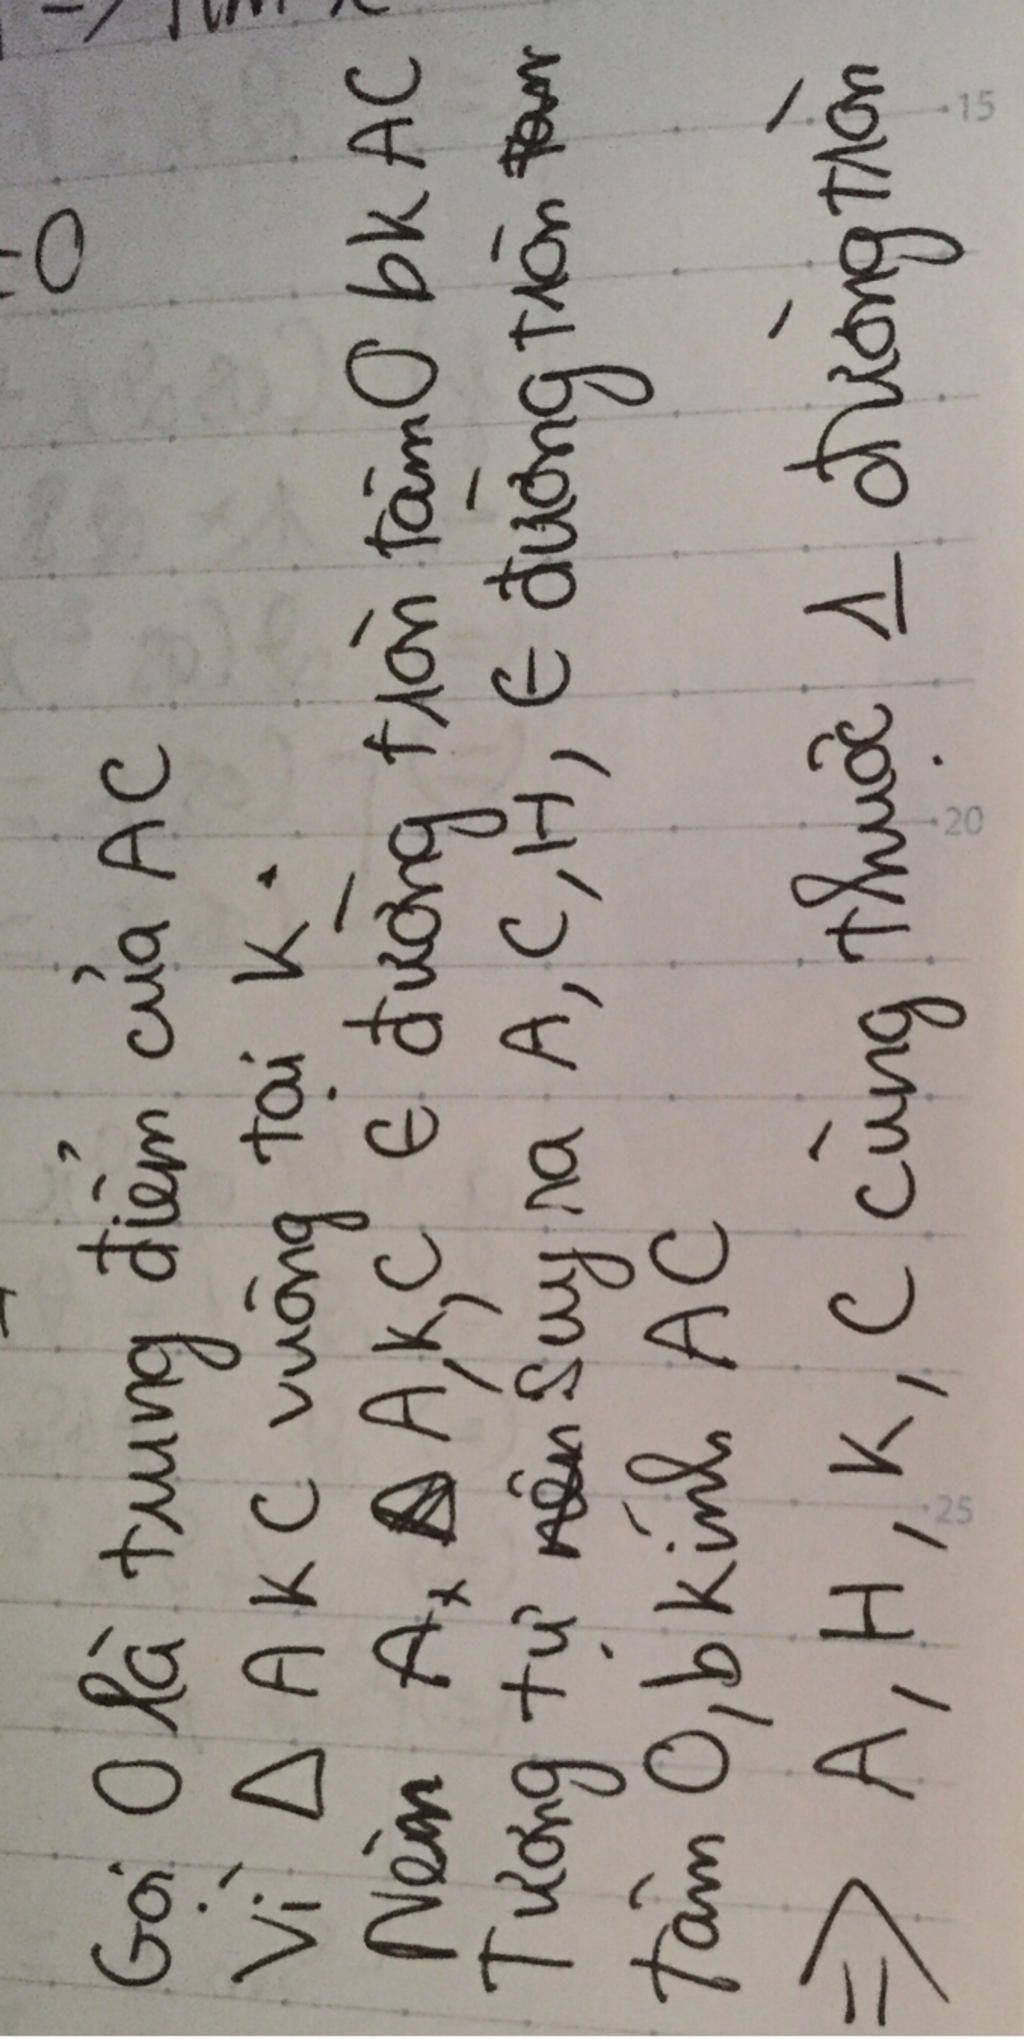 Gọi O là trung điểm của AC
Vì Δ AKC vuông tại K.
Nên A, K, C ∈ đường tròn tâm O bk AC
Tương tự Suy ra A, C, H, ∈ đường tròn
tâm O, bkính AC
=> A, H, K, C cùng thuộc 1 đường tròn
15
20
25